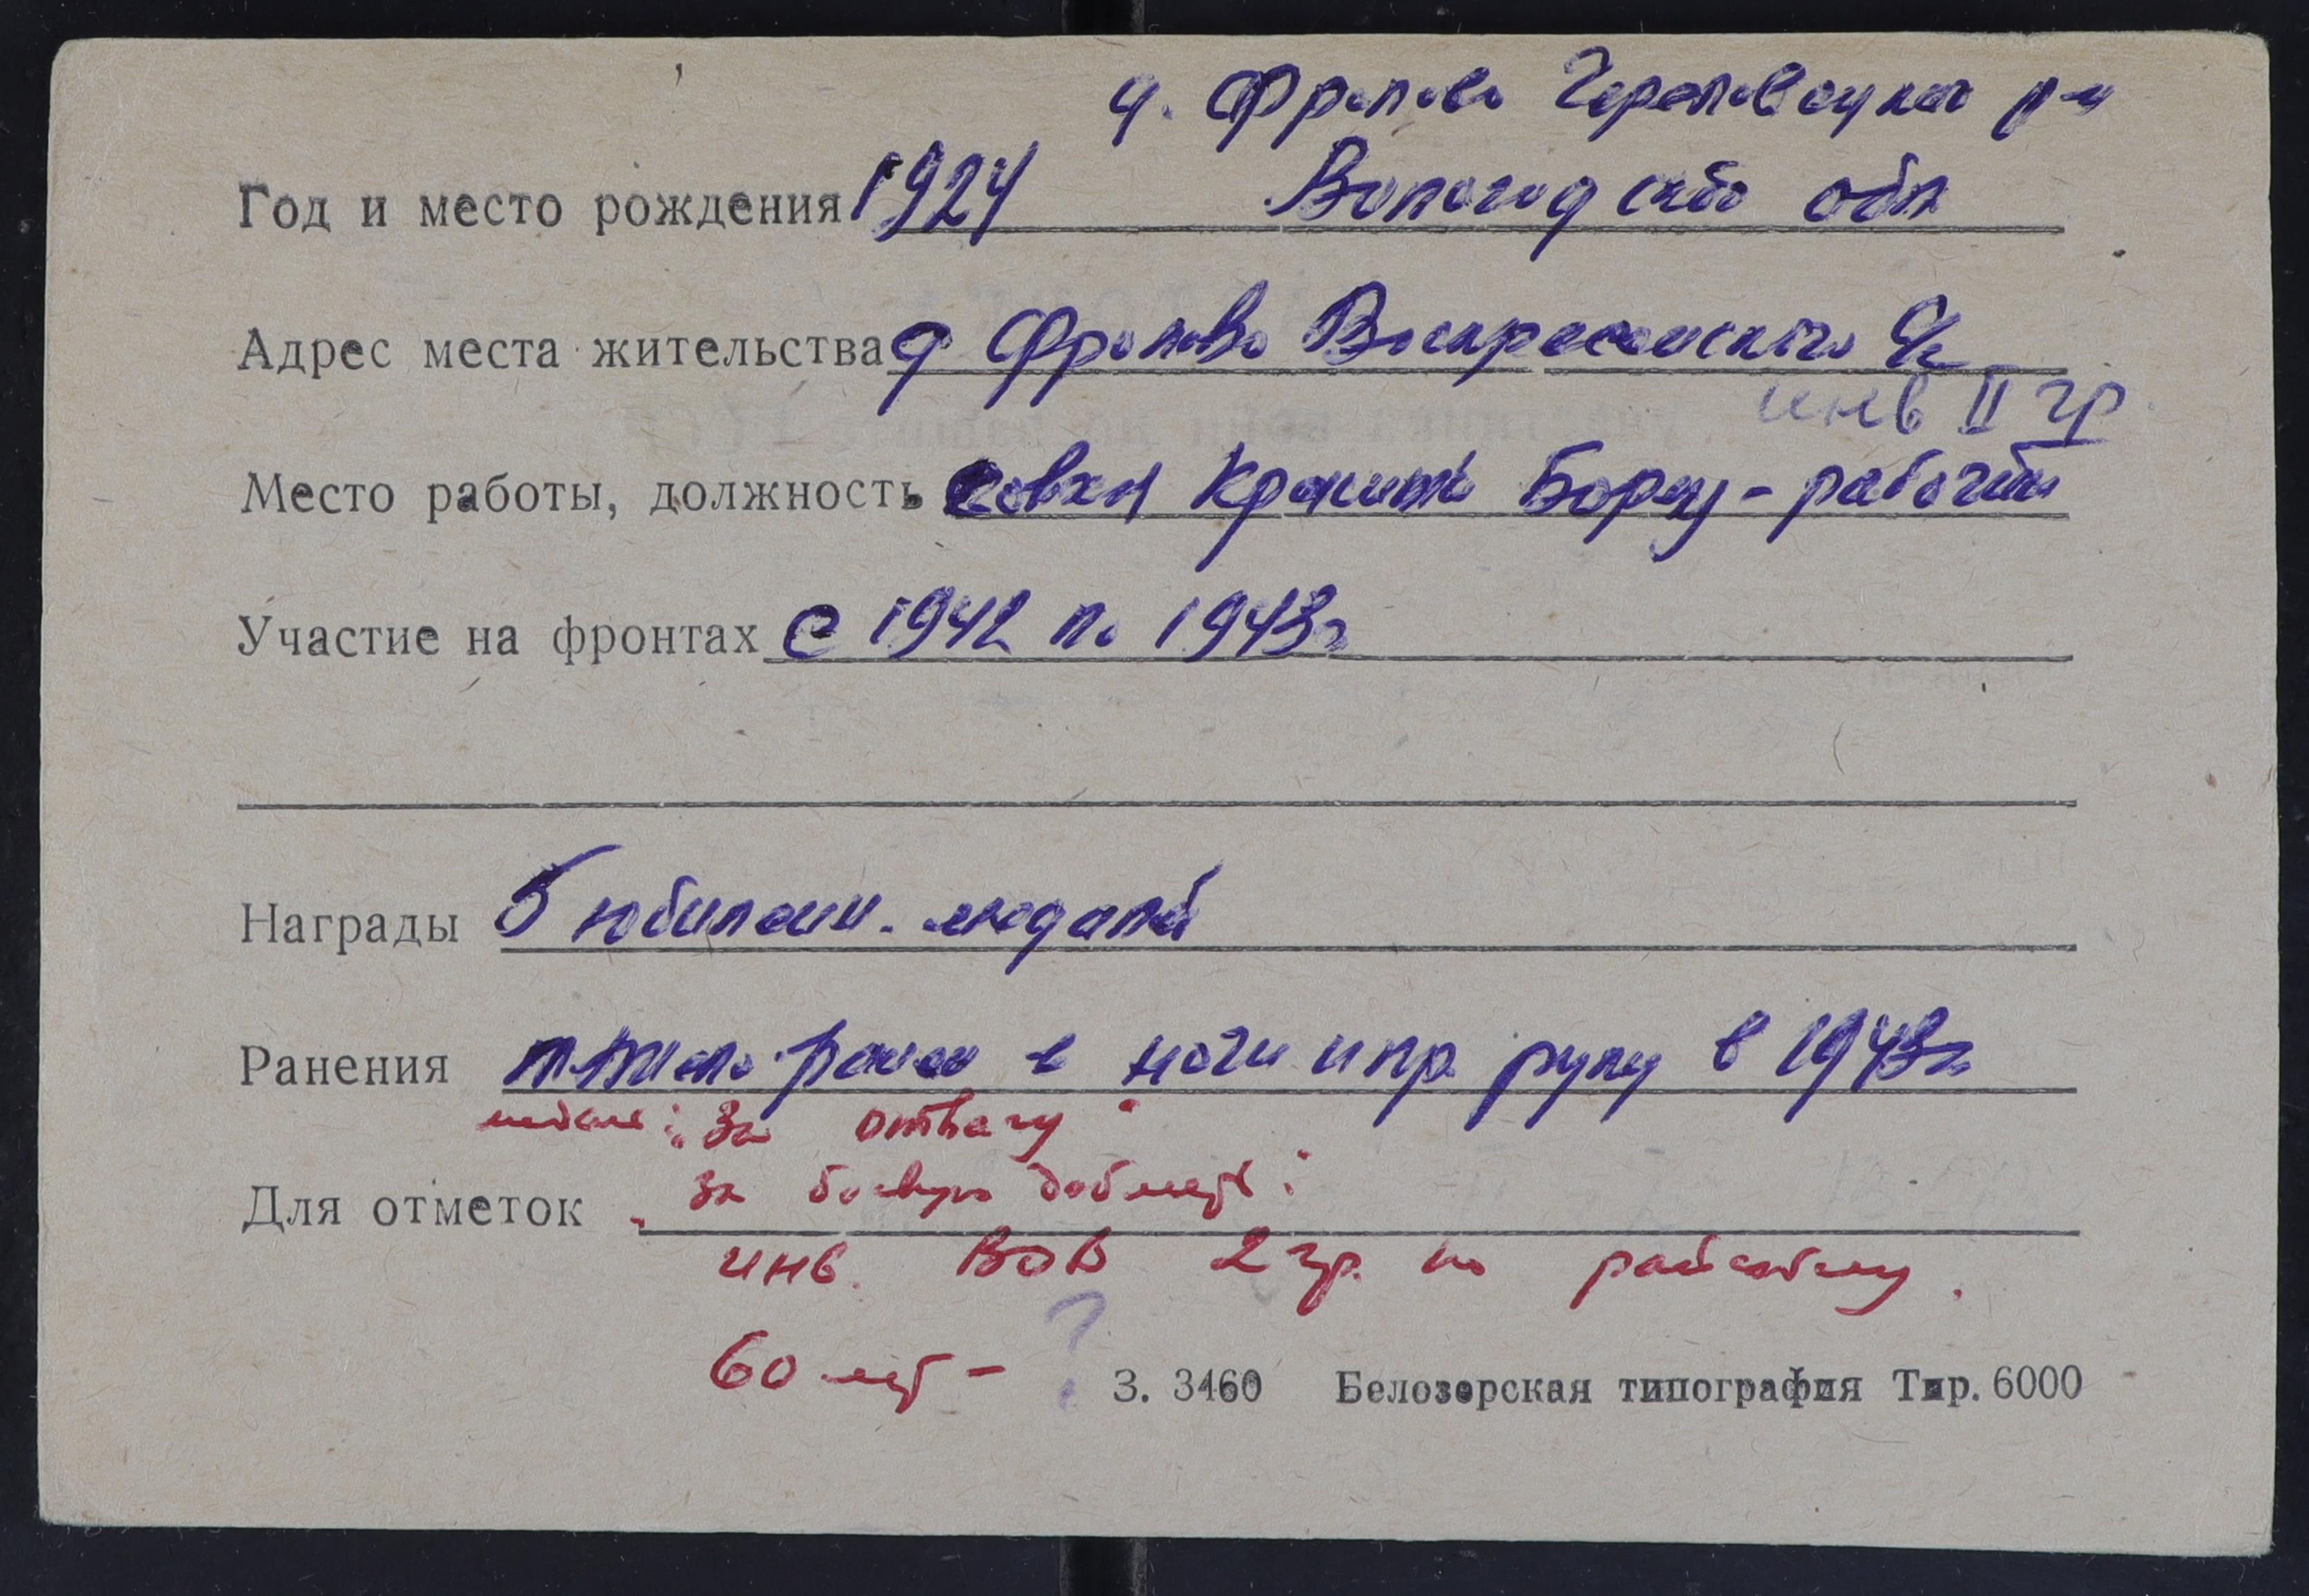 д. Фролово Череповецкого р-н
Год и место рождения 1924 Вологодской обл
Адрес места жительства д Фролово Воскресенского с/с
инв II гр.
Место работы, должность совхоз Красный Борец - рабочий
Участие на фронтах с 1942 по 1943г
Награды 5 юбилейн. медалей
Ранения тяжело ранен в ноги и пр. руку в 1943г
медаль: "За отвагу"
Для отметок "за боевую доблесть"
инв. ВОВ 2 гр. по
60 лет - ?
З. 3460 Белозерская типография Тир. 6000